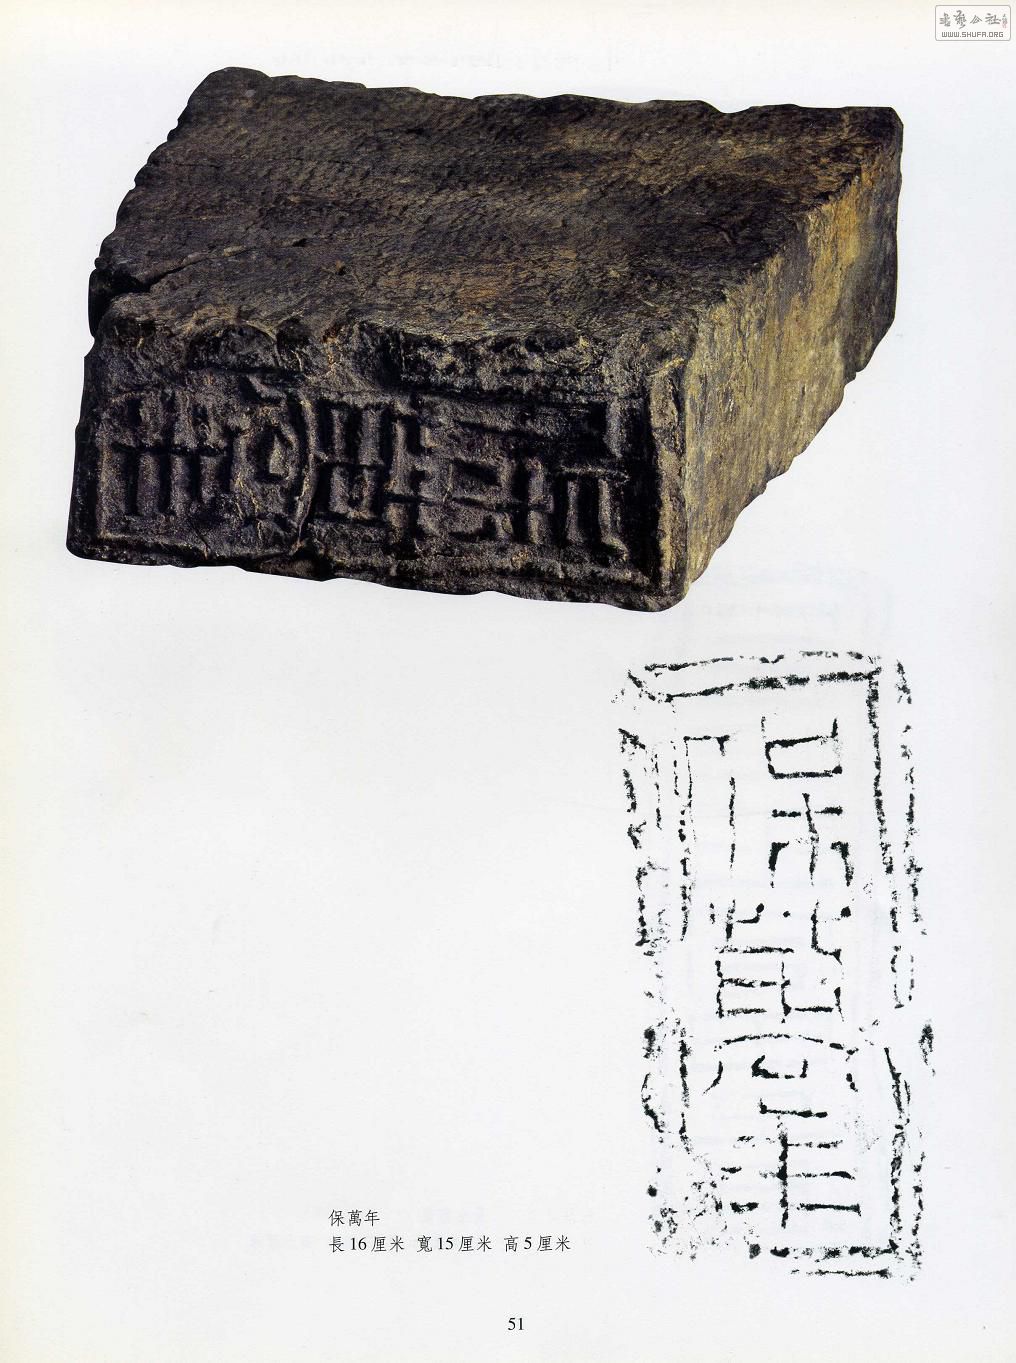 書法公社
WWW.SHUFA.ORG
保萬年
保萬年
長16厘米 寬15厘米 高5厘米
51